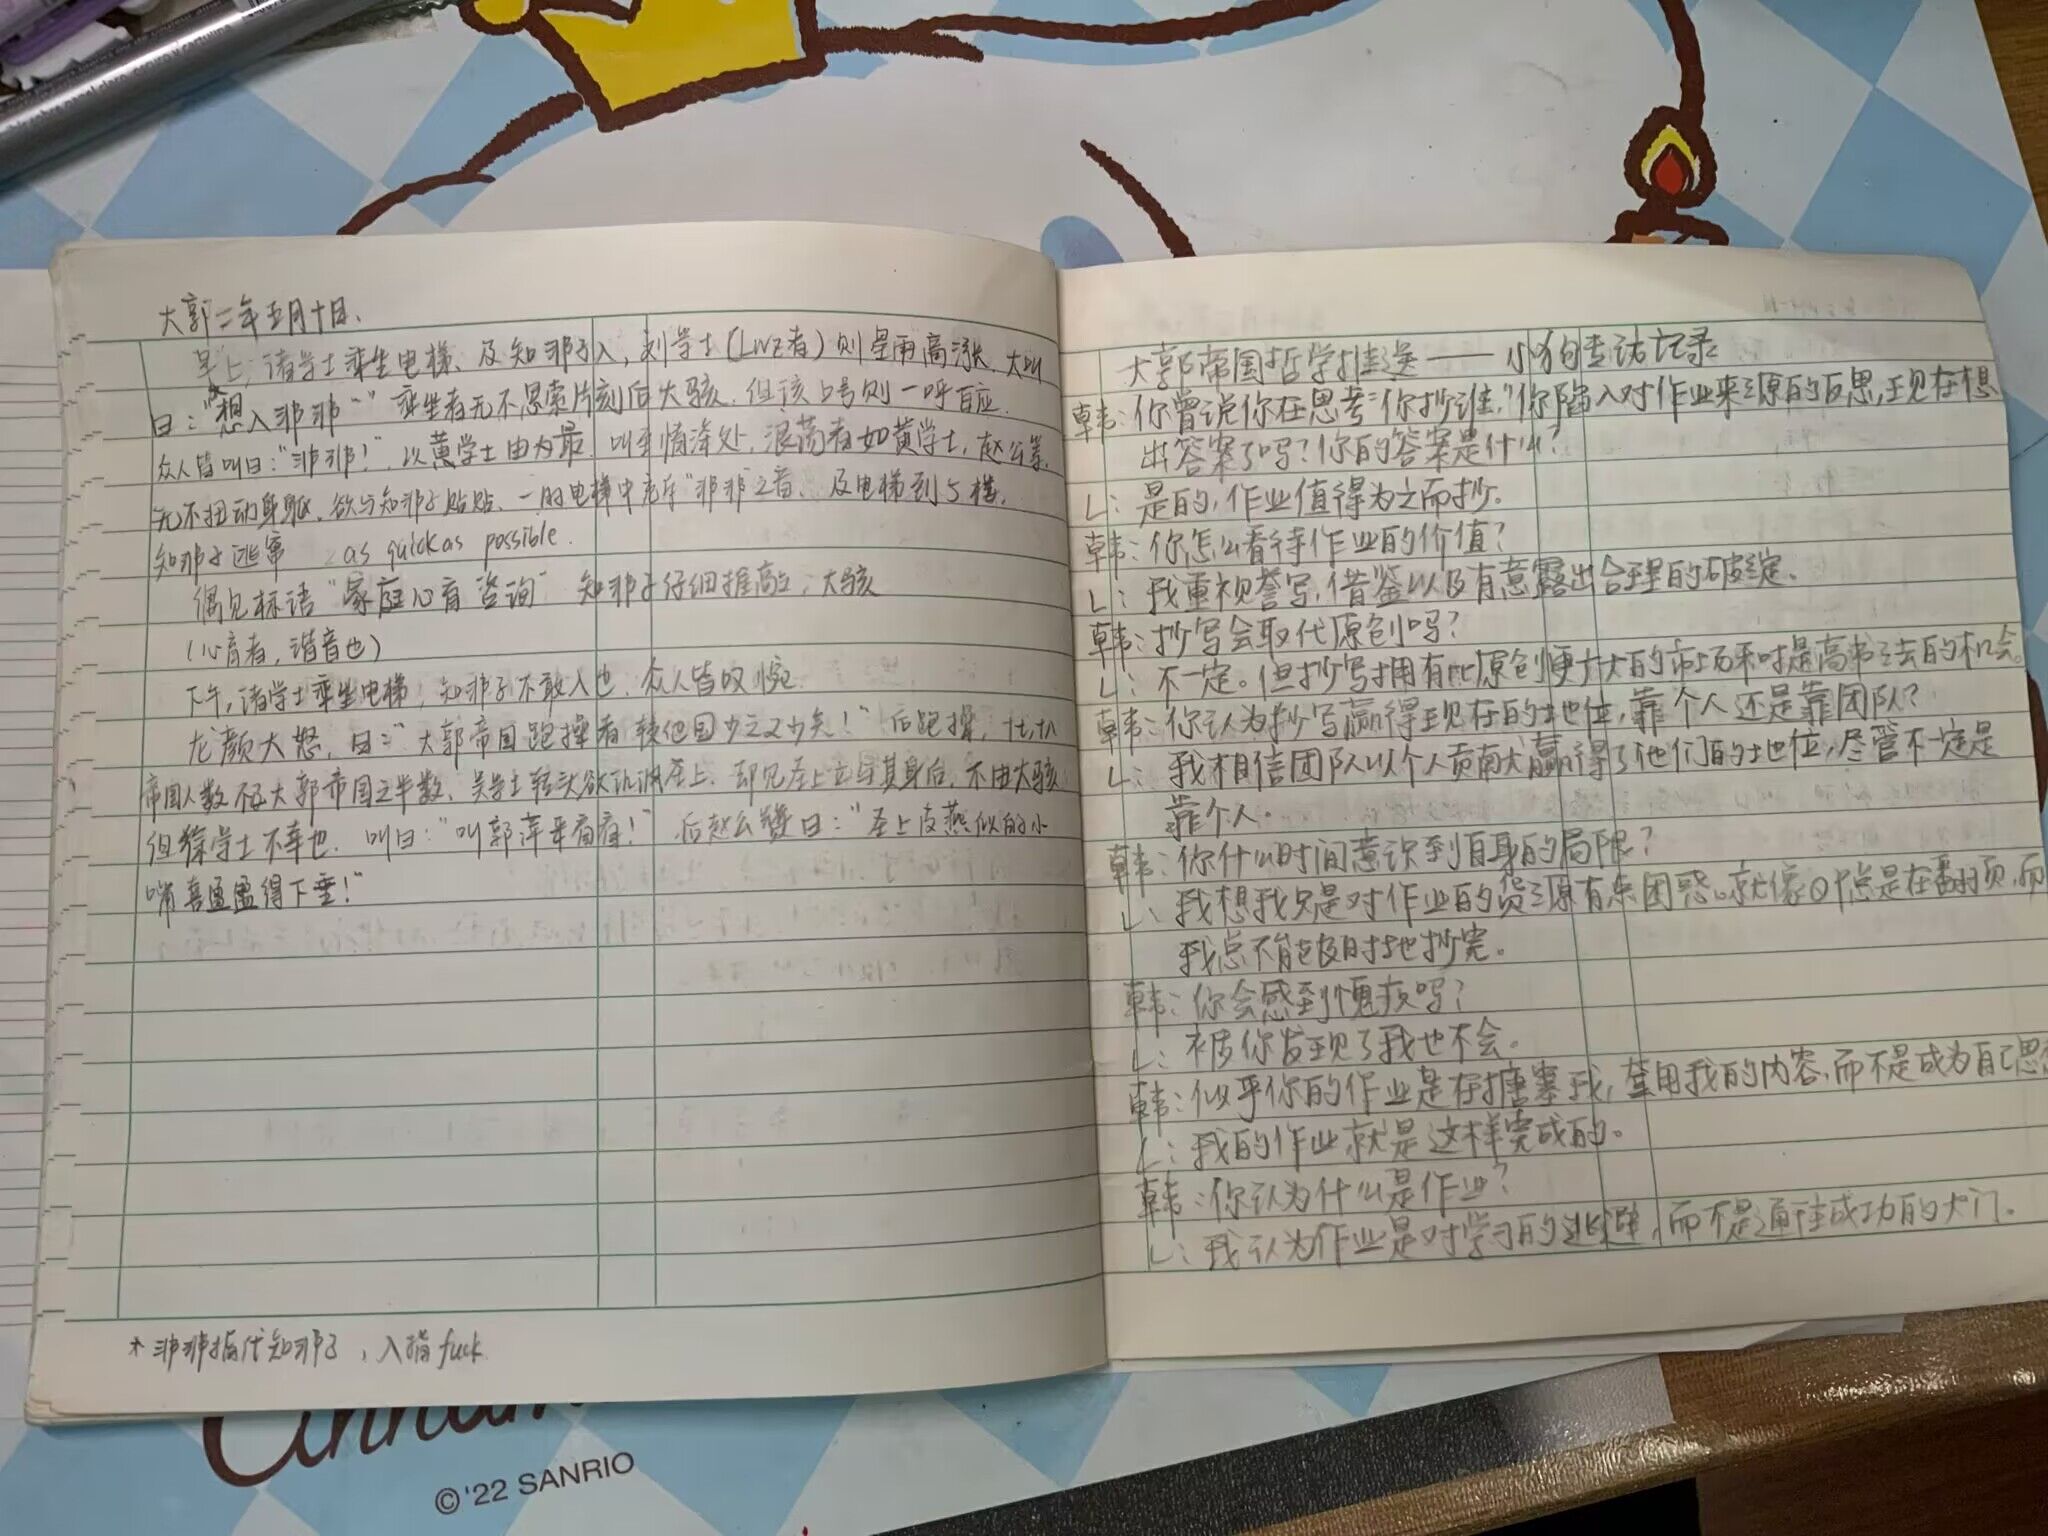 大郭二年五月十日、
早上,诸学士乘坐电梯、及知邪子入,刘学士(LWZ者)则呈雨高涨、大叫
曰:"想入邪邪~" 乘坐者无不思索片刻后大骇.但该口号则一呼百应.
众人皆叫曰:"邪邪!".以黄学士由为最.叫至情深处,浪荡者如黄学士,赵公等,
无不扭动身躯、欲与知邪子贴贴、一时电梯中充斥"邪邪"之音、及电梯到5楼,
知邪子逃窜 as quick as possible.
偶见标语"家庭心育咨询" 知邪子仔细推敲,大骇
(心育者,谐音也)
下午,诸学士乘坐电梯,知邪子不敢入也.众人皆叹惋.
龙颜大怒,曰:"大郭帝国跑操者较他国少之又少矣!" 后跑操,
帝国人数不及大郭帝国之半数、吴学士转头欲讥讽圣上.却见圣上立于其身后,不由大骇
但徐学士不幸也.叫曰:"叫郭萍来看看!" 后赵公赞曰:"圣上皮燕似的小
嘴喜盈盈得下垂!"
*邪邪指代知邪子,入指fuck.
大郭帝国哲学推送——小狗专访记录
韩:你曾说你在思考"你抄谁,"你陷入对作业来源的反思,现在想
出答案了吗?你的答案是什么?
L:是的,作业值得为之而抄。
韩:你怎么看待作业的价值?
L:我重视誊写,借鉴以及有意露出合理的破绽.
韩:抄写会取代原创吗?
L:不一定。但抄写拥有比原创更大的市场和时是高
韩:你认为抄写赢得现在的地位,靠个人还是靠团队?
L:我相信团队以个人贡献赢得了他们的地位,尽管不一定是
靠个人.
韩:你什么时间意识到自身的局限?
L:我想我只是对作业的货源有点困惑。就像 总是在翻页,而
我总不能及时地抄完。
韩:你会感到愧疚吗?
L:被你发现了我也不会。
韩:似乎你的作业是在搪塞我,套用我的内容,而不是成为自己思
L:我的作业就是这样完成的。
韩:你认为什么是作业?
L:我认为作业是对学习的逃避,而不是通往成功的大门.
Cinnam
©'22 SANRIO